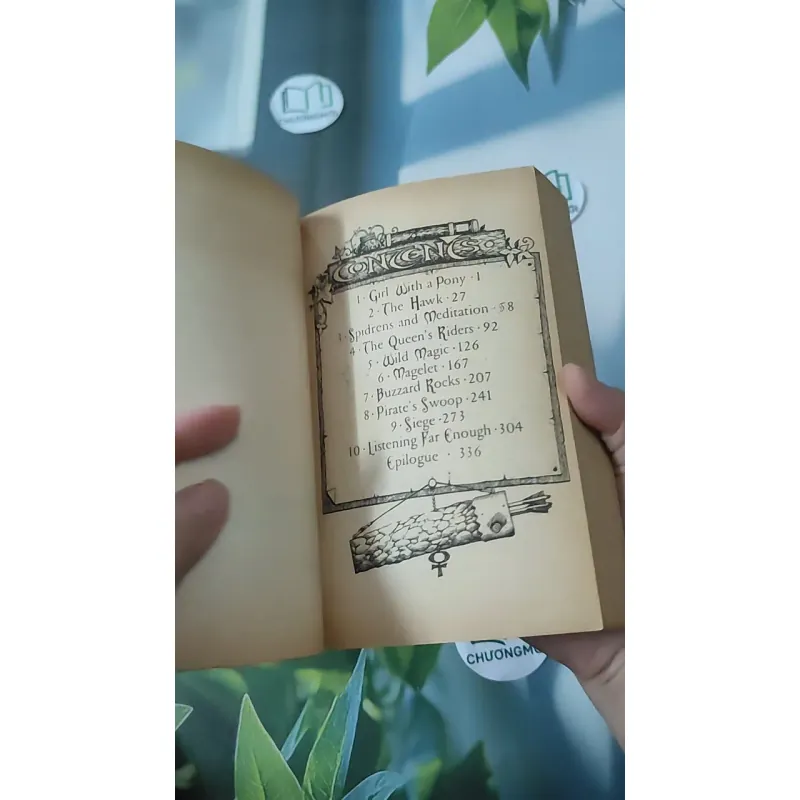 CHUONGMOI
CONTENTS
1 · Girl With a Pony · 1
2 · The Hawk · 27
3 · Spidrens and Meditation · 58
4 · The Queen's Riders · 92
5 · Wild Magic · 126
6 · Magelet · 167
7 · Buzzard Rocks · 207
8 · Pirate's Swoop · 241
9 · Siege · 273
10 · Listening Far Enough · 304
Epilogue · 336